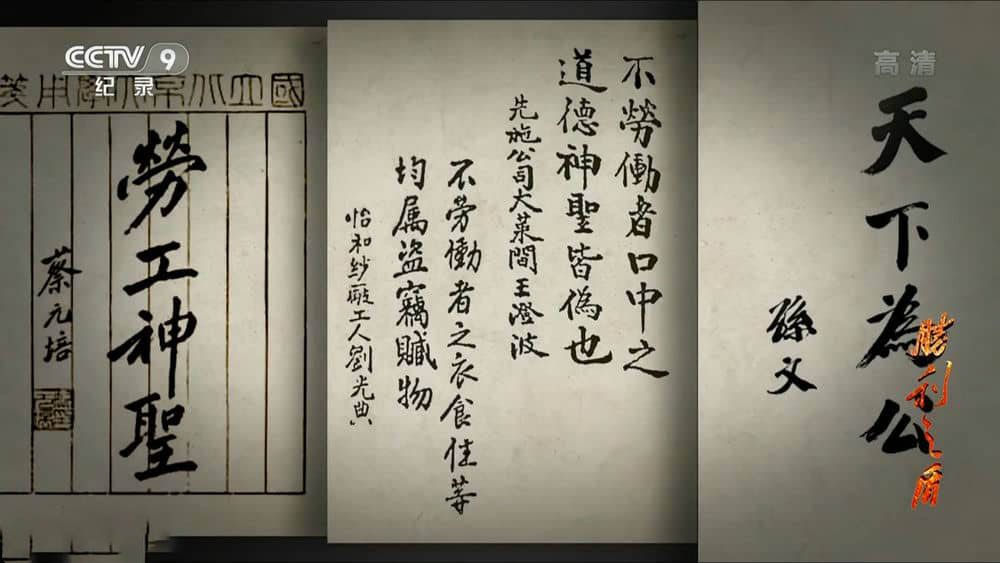 CCTV 9
纪录
高清
國立北京大學用箋
勞工神聖
蔡元培
不勞働者口中之
道德神聖皆偽也
先施公司大菜間王澄波
不劳働者之衣食住等
均属盗竊贓物
怡和纱廠工人劉光典
天下為公
孫文
勝利之盾